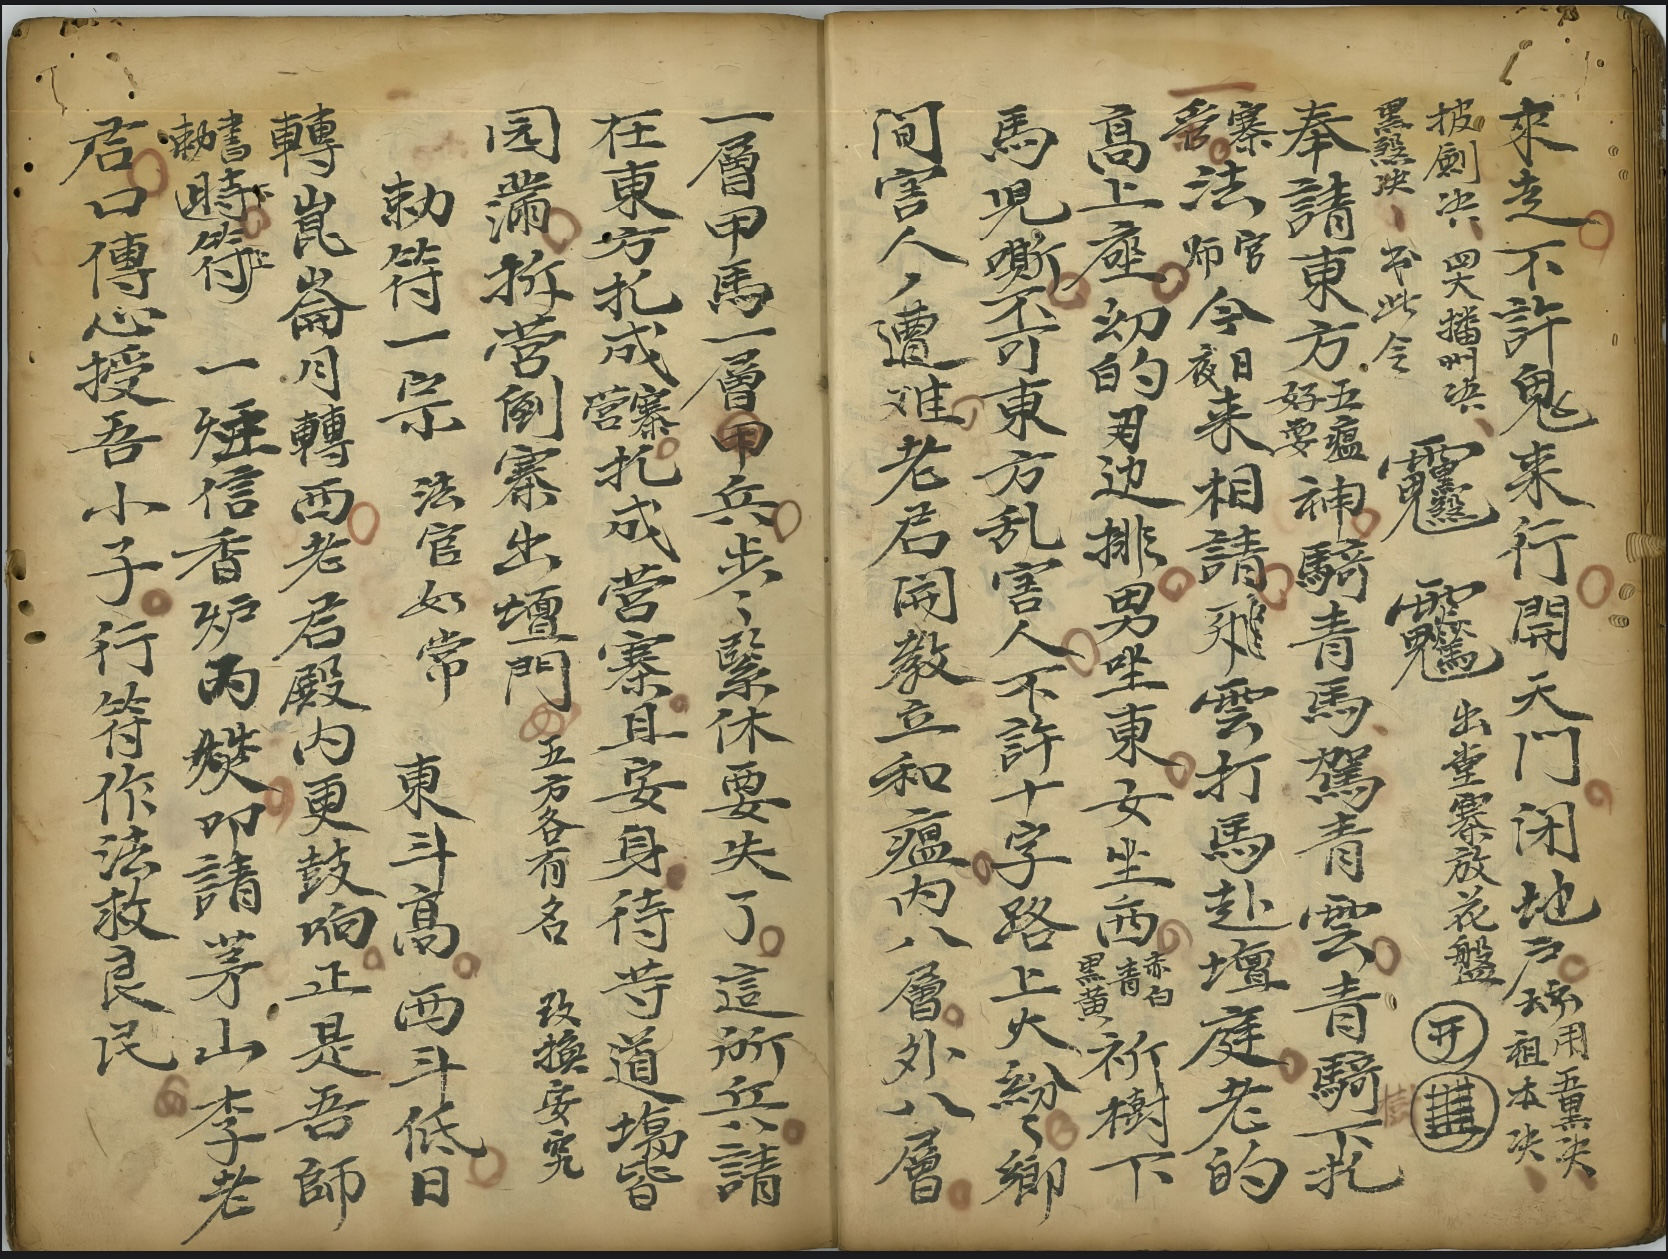 來走不許鬼来行開天門闭地户 用五黑决
祖本决
披劍决 四大播州决 出堂寨放花盤
黑煞决 令
奉請東方五瘟好耍神騎青馬駕青雲青騎下扎
寨营法官师今日夜来相請飛雲打馬赴壇庭老的
高上座幼的两边排男坐東女坐西赤白青黑黄祈樹下
馬児嘶不可東方乱害人不許十字路上火紛々鄉
间害人々遭难老君開教立和瘟内八層外八層
一層甲馬一層甲兵步々緊休要失了這所兵請
在東方扎成寨营扎成营寨且安身待等道場皆
园满拆营倒寨出壇門 五方各有名 改换安究
勅符一宗 法官如常 東斗高西斗低日
轉崑崙月轉西老君殿内更鼓响正是吾師
書勅時符 一炷信香炉内焚叩請茅山李老
君口傳心授吾小子行符作法救良民